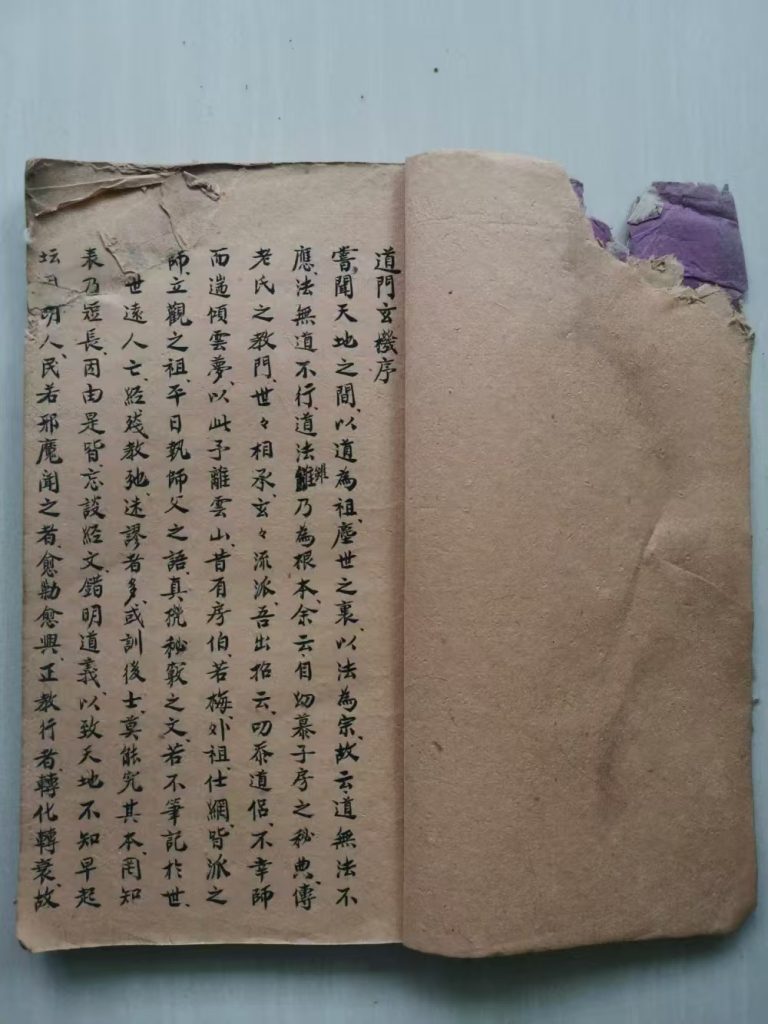 道門玄機序
嘗聞天地之間、以道為祖、塵世之裏、以法為宗、故云道無法不
應、法無道不行、道法雖乃為根本、余云自幼慕子房之秘典、傳
老氏之教門、世々相承、玄々流派、吾出招云、叨忝道侶、不幸師
而遄傾雲夢、以此予離雲山、昔有房伯、若梅、外祖、仕網、皆派之
師、立觀之祖、平日執師父之語、真機秘竅之文、若不筆記於世、
世遠人亡、經殘教弛、迷謬者多、或訓後士、莫能究其本、罔知
表乃短長、因由是皆忘談經文、錯明道義、以致天地不知早起
坛 明人、民若邪魔闻之者、愈勦愈興、正教行者、轉化轉衰、故